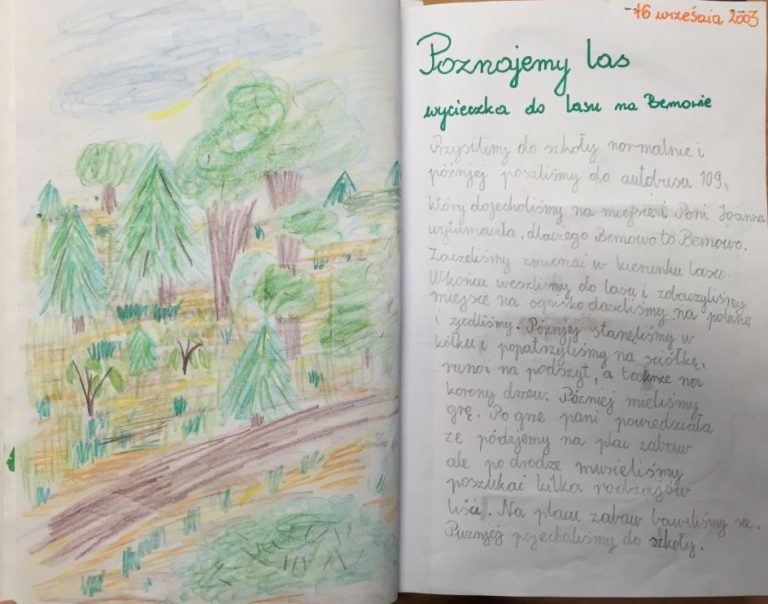 16 września 2003
Poznajemy las
wycieczka do lasu na Bemowie
Przyszliśmy do szkoły normalnie i
później poszliśmy do autobusu 109,
który dojechaliśmy na miejsce i Pani Joanna
wytłumaczła, dlaczego Bemowo to Bemowo.
Zaczeliśmy zmierzać w kierunku lasu.
Wkońcu weszliśmy do lasu i zobaczyliśmy
miejsce na ognisko doszliśmy na polanę
i zjedliśmy. Późnjej stanęliśmy w
kółku i popatrzyliśmy na sciółkę,
runo i na podszyt, a także na
korony drzew. Później mieliśmy
grę. Po grze pani powiedziała
ze pódzjemy na plac zabaw
ale po drodze musieliśmy
poszukać kilka rodzajów
liści. Na placu zabaw bawiliśmy się.
Puznjej pojechaliśmy do szkoły.